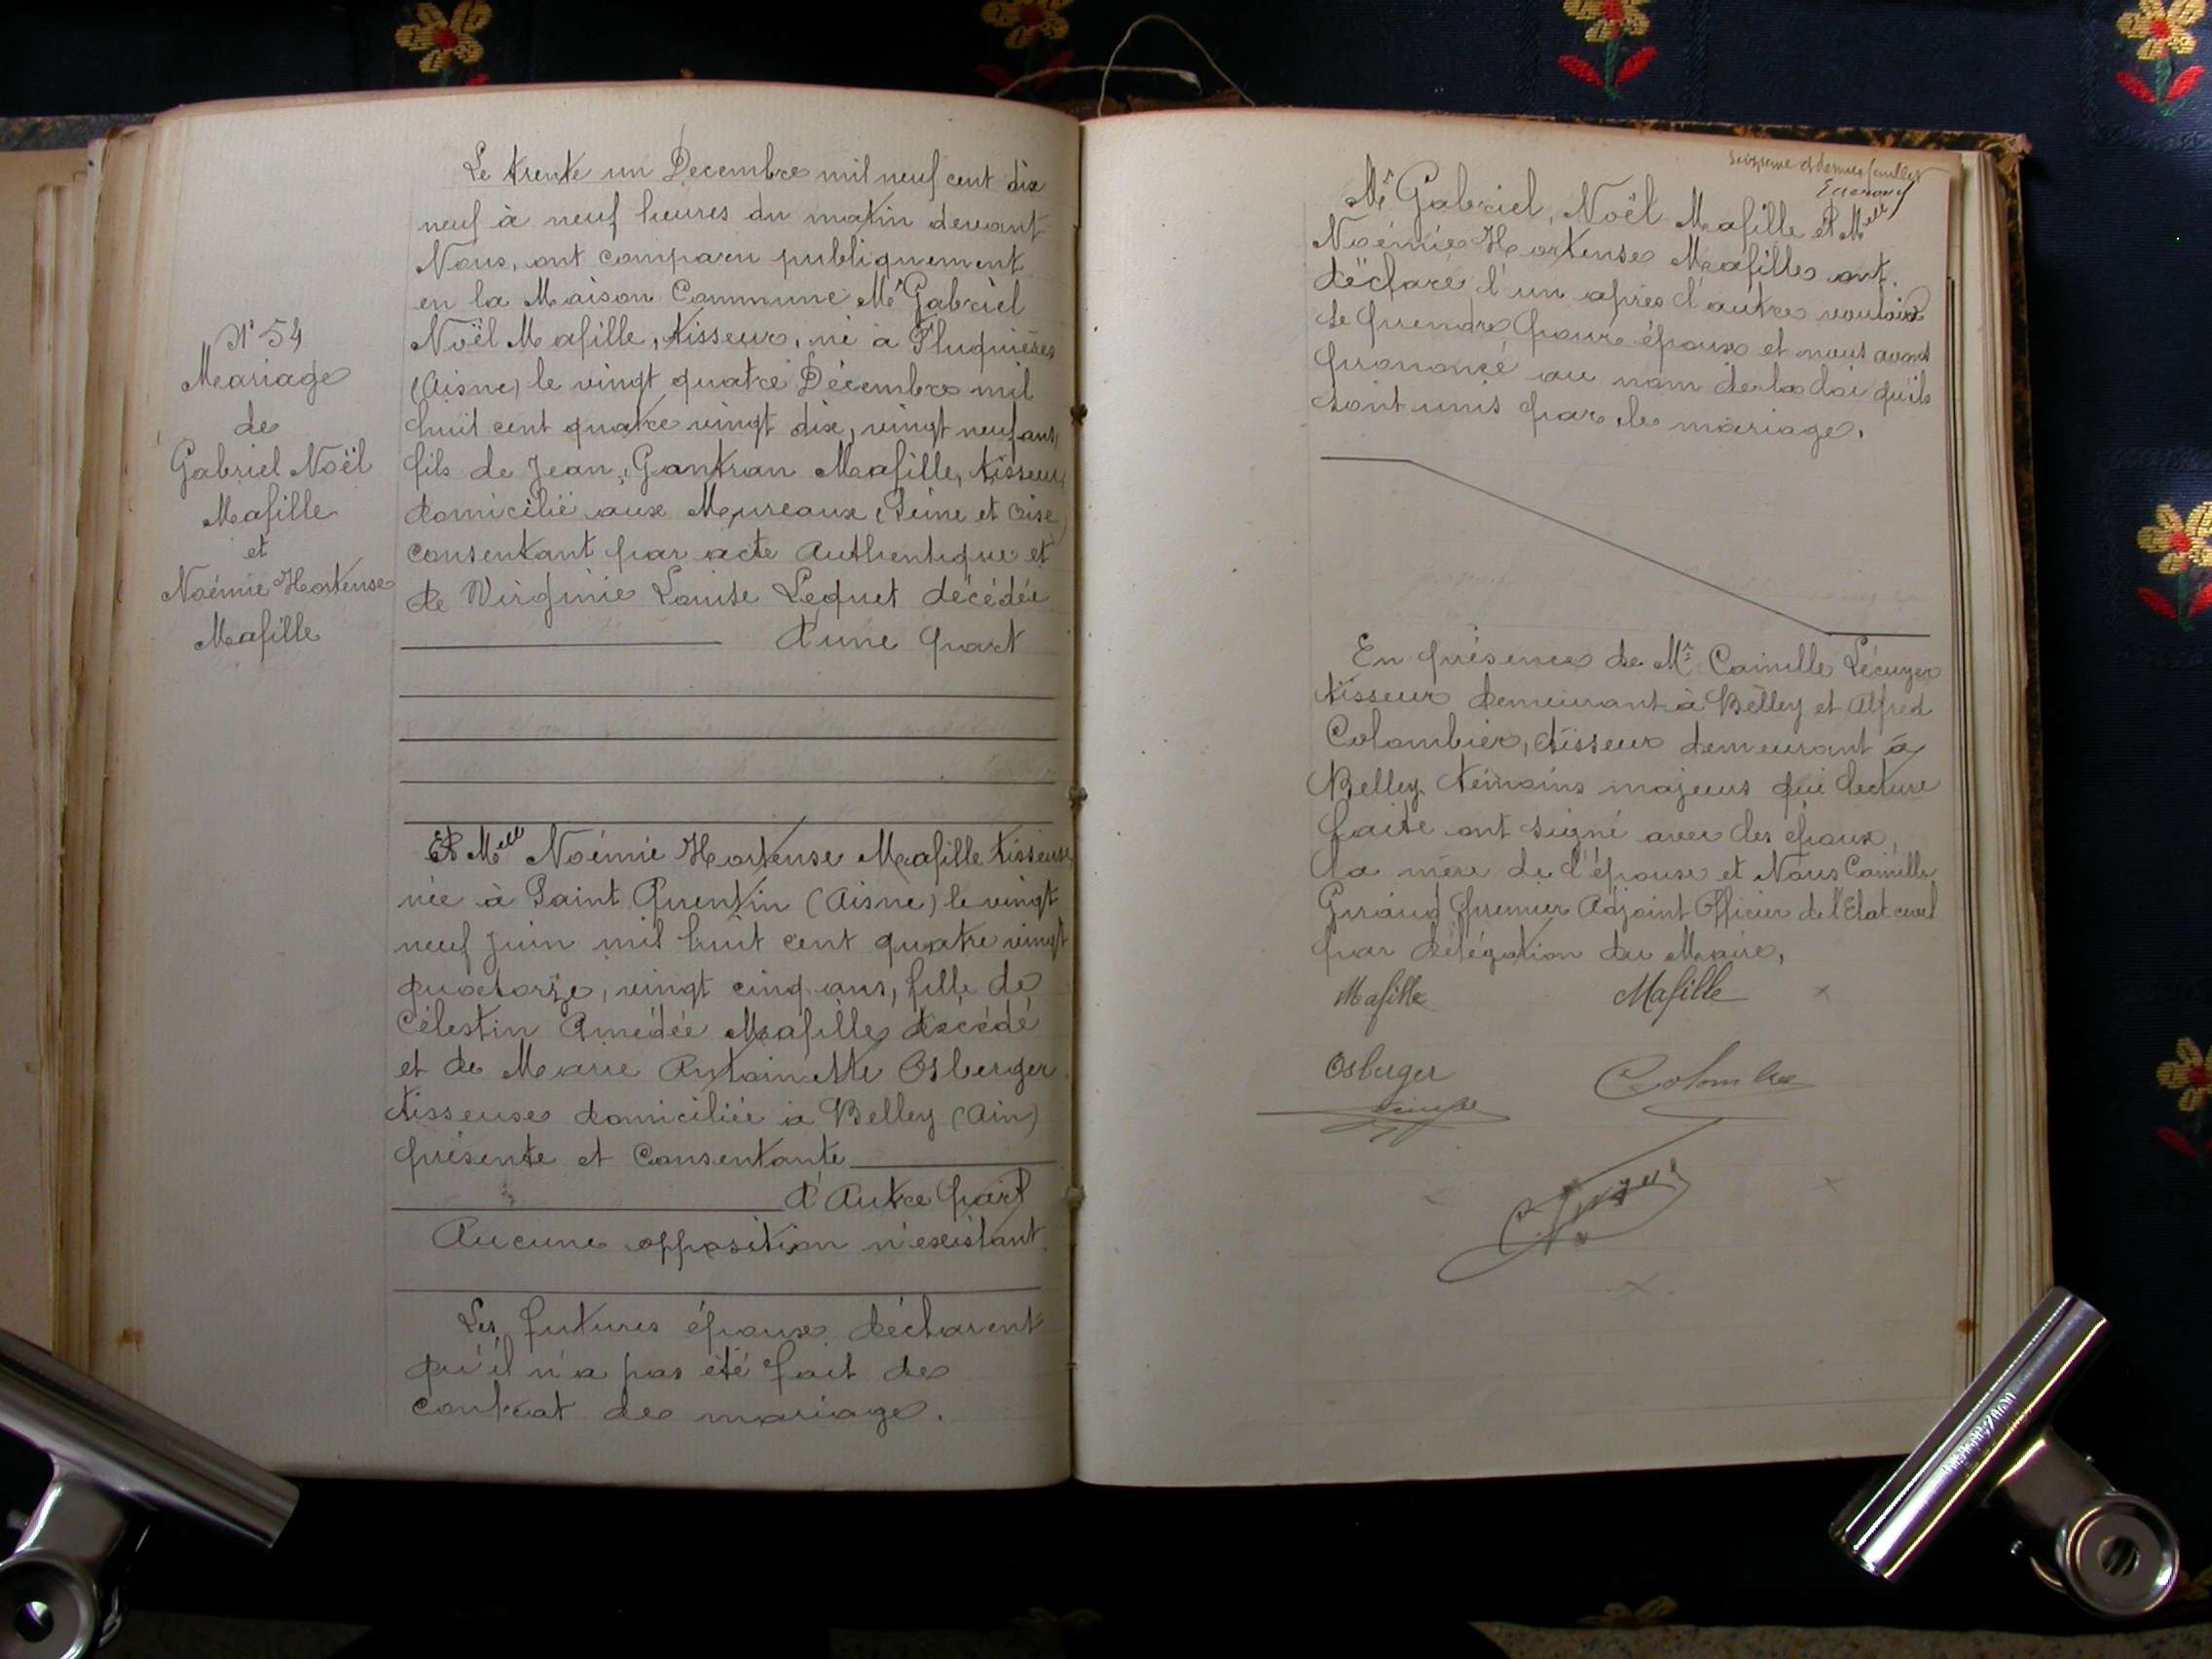 N° 54
Mariage
de
Gabriel Noël
Mafille
et
Noémie Hortense
Mafille
Le trente un Decembre mil neuf cent dix
neuf à neuf heures du matin devant
Nous, ont comparu publiquement
en la Maison Commune Mr Gabriel
Noël Mafille, tisseur, né à Fluquières
(Aisne) le vingt quatre Décembre mil
huit cent quatre vingt dix, vingt neuf ans,
fils de Jean, Gantran Mafille, tisseur,
domicilié aux Mureaux (Seine et Oise)
consentant par acte Authentique et
de Virginie Louise Lequet décédée
d'une part
Et Melle Noémie Hortense Mafille tisseuse
née à Saint Quentin (Aisne) le vingt
neuf juin mil huit cent quatre vingt
quatorze, vingt cinq ans, fille de
Célestin Amédée Mafille décédé
et de Marie Antoinette Osberger
tisseuse domiciliée à Belley (Ain)
présente et Consentante
d'Autre part
Aucune opposition n'existant
Les futures époux déclarent
qu'il n'a pas été fait de
contrat de mariage.
seizième et dernier feuillet
Mr Gabriel, Noël Mafille et Melle
Noémie Hortense Mafille ont
déclaré l'un après l'autre vouloir
se prendre pour époux et nous avons
prononcé au nom de la loi qu'ils
sont unis par le mariage.
En présence de Mr Camille Lécuyer
tisseur demeurant à Belley et Alfred
Colombier, tisseur demeurant à
Belley. témoins majeurs qui lecture
faite ont signé avec les époux,
la mère de l'épouse et Nous Camille
Giraud premier Adjoint Officier de l'Etat civil
par délégation du Maire,
Mafille Mafille
Osberger Colombier